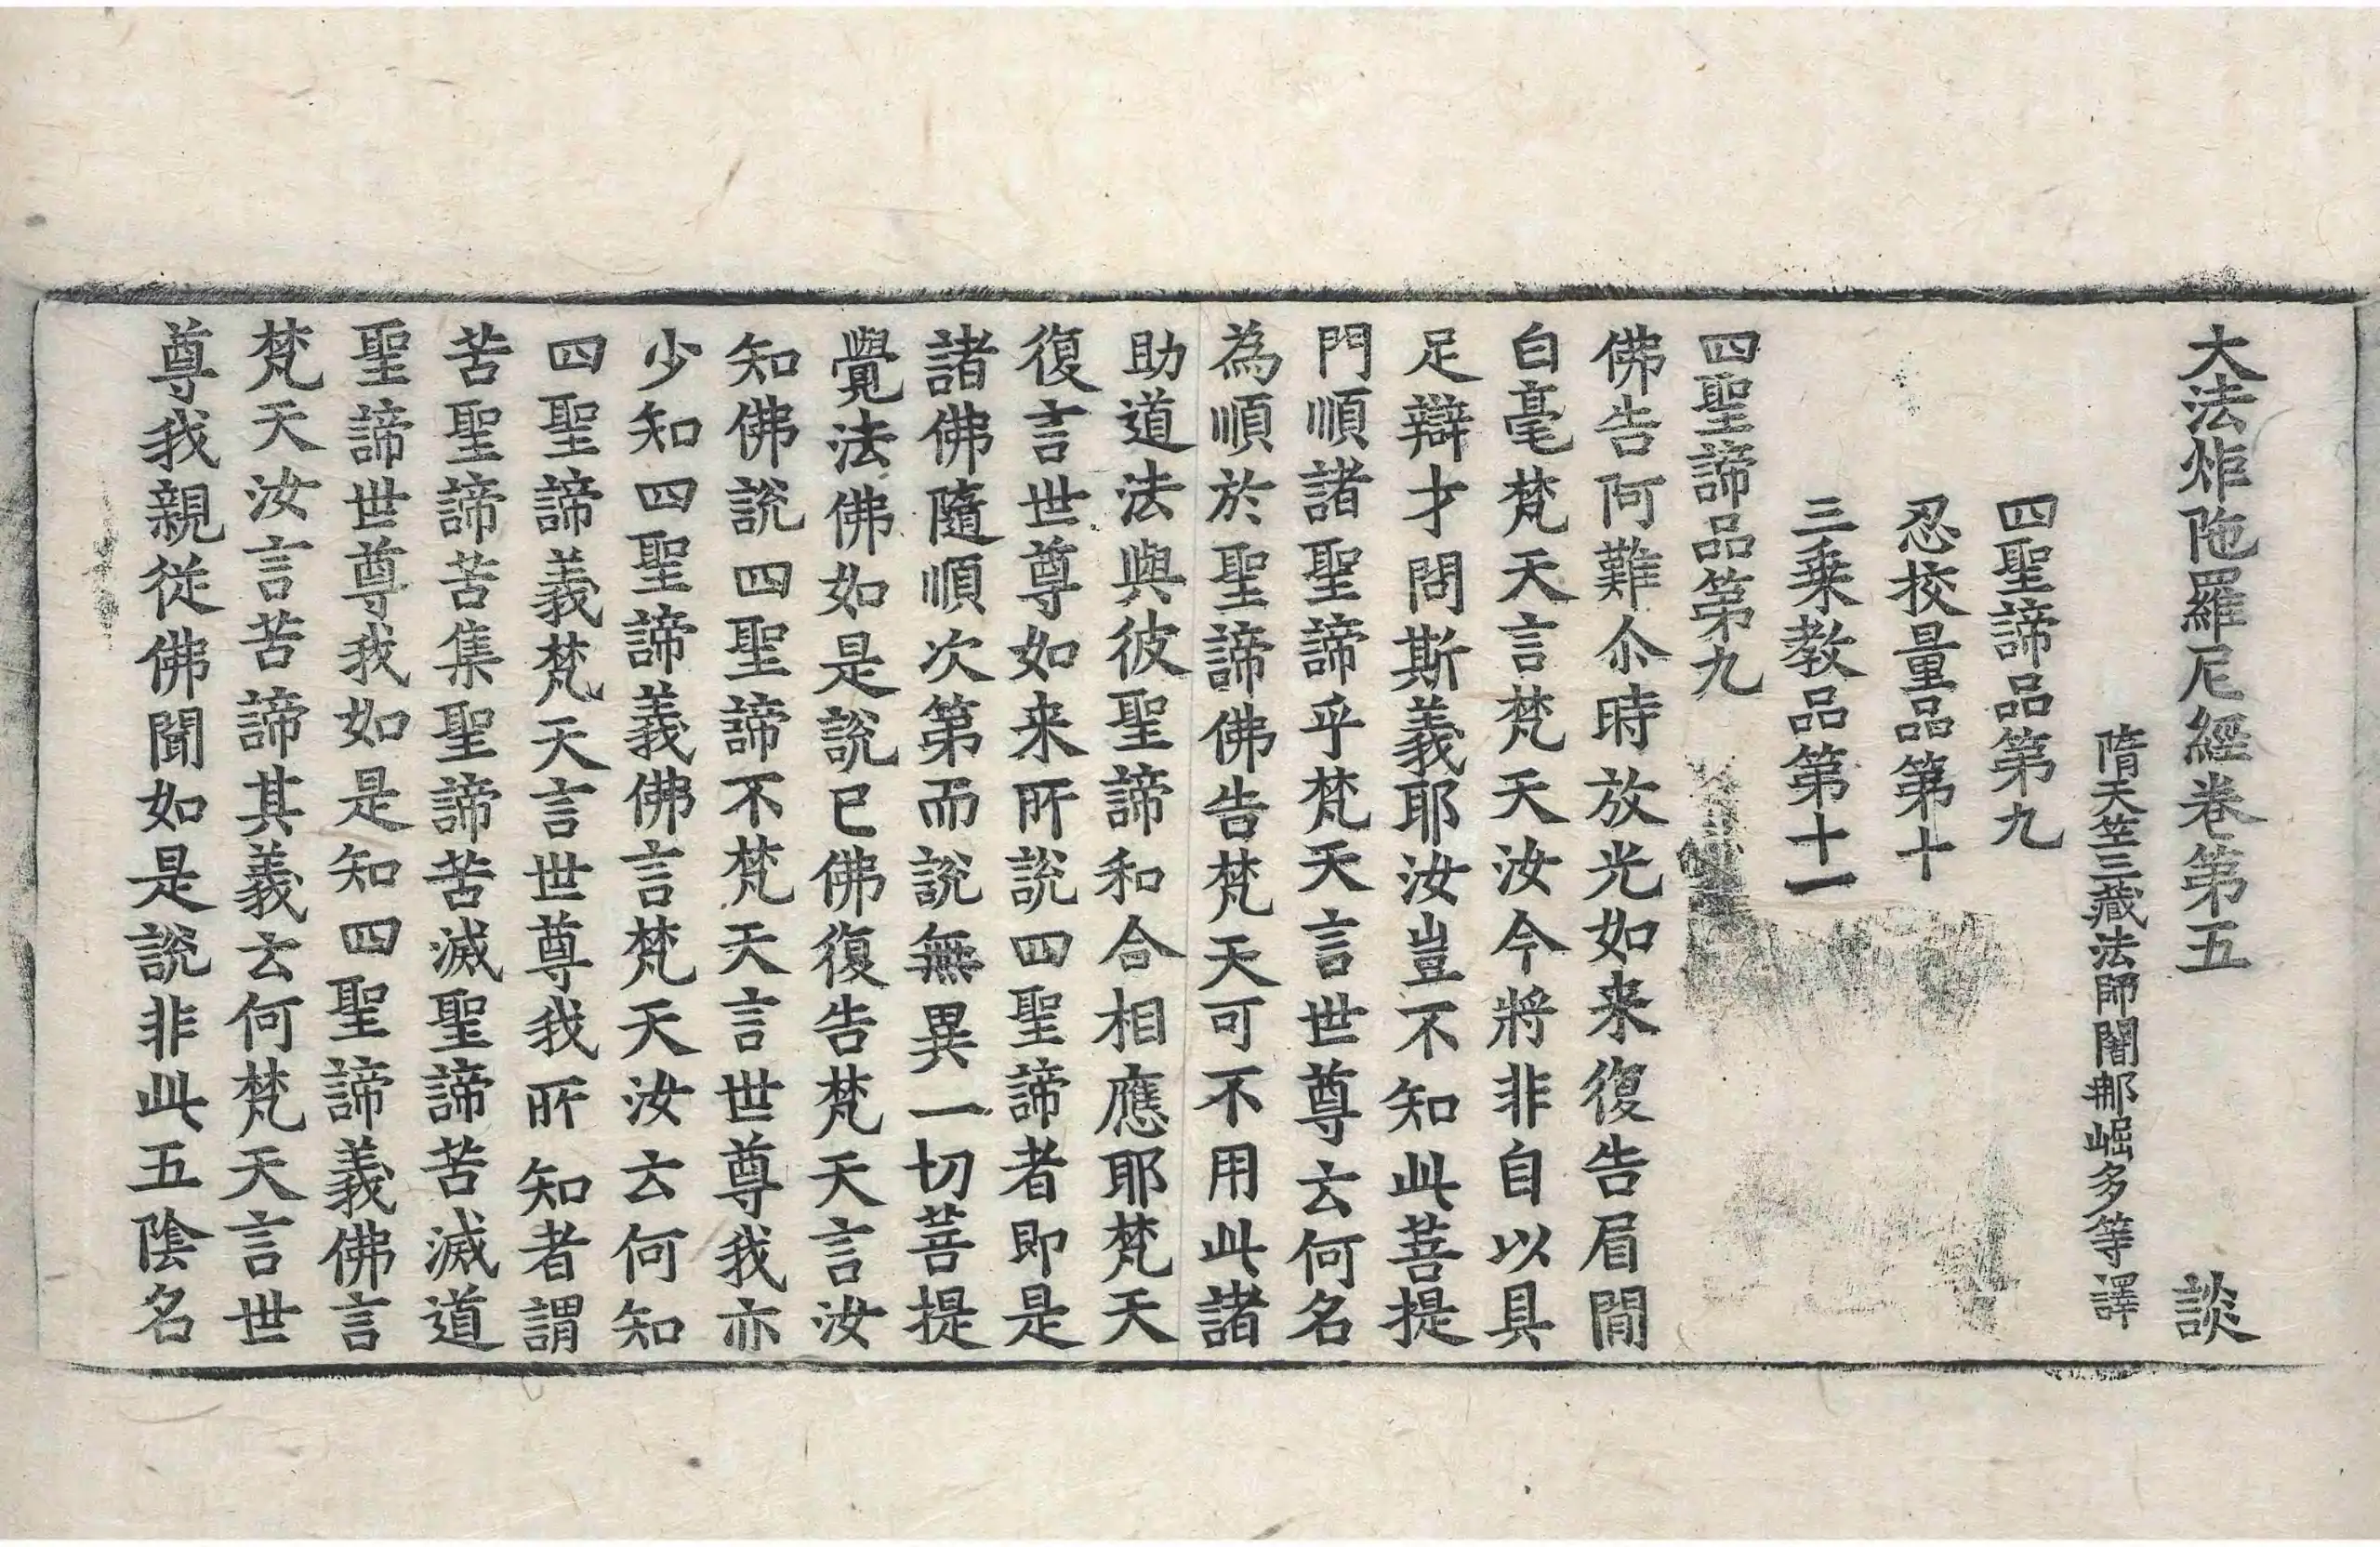 大法炬陁羅尼經卷第五 談
隋天竺三藏法師闍那崛多等譯
四聖諦品第九
忍挍量品第十
三乗教品第十一
四聖諦品第九
佛告阿難尒時放光如来復告眉間
白毫梵天言梵天汝今將非自以具
足辯才問斯義耶汝豈不知此菩提
門順諸聖諦乎梵天言世尊云何名
為順於聖諦佛告梵天可不用此諸
助道法與彼聖諦和合相應耶梵天
復言世尊如来所說四聖諦者即是
諸佛隨順次第而說無異一切菩提
覺法佛如是說已佛復告梵天言汝
知佛說四聖諦不梵天言世尊我亦
少知四聖諦義佛言梵天汝云何知
四聖諦義梵天言世尊我所知者謂
苦聖諦苦集聖諦苦滅聖諦苦滅道
聖諦世尊我如是知四聖諦義佛言
梵天汝言苦諦其義云何梵天言世
尊我親從佛聞如是說非此五陰名